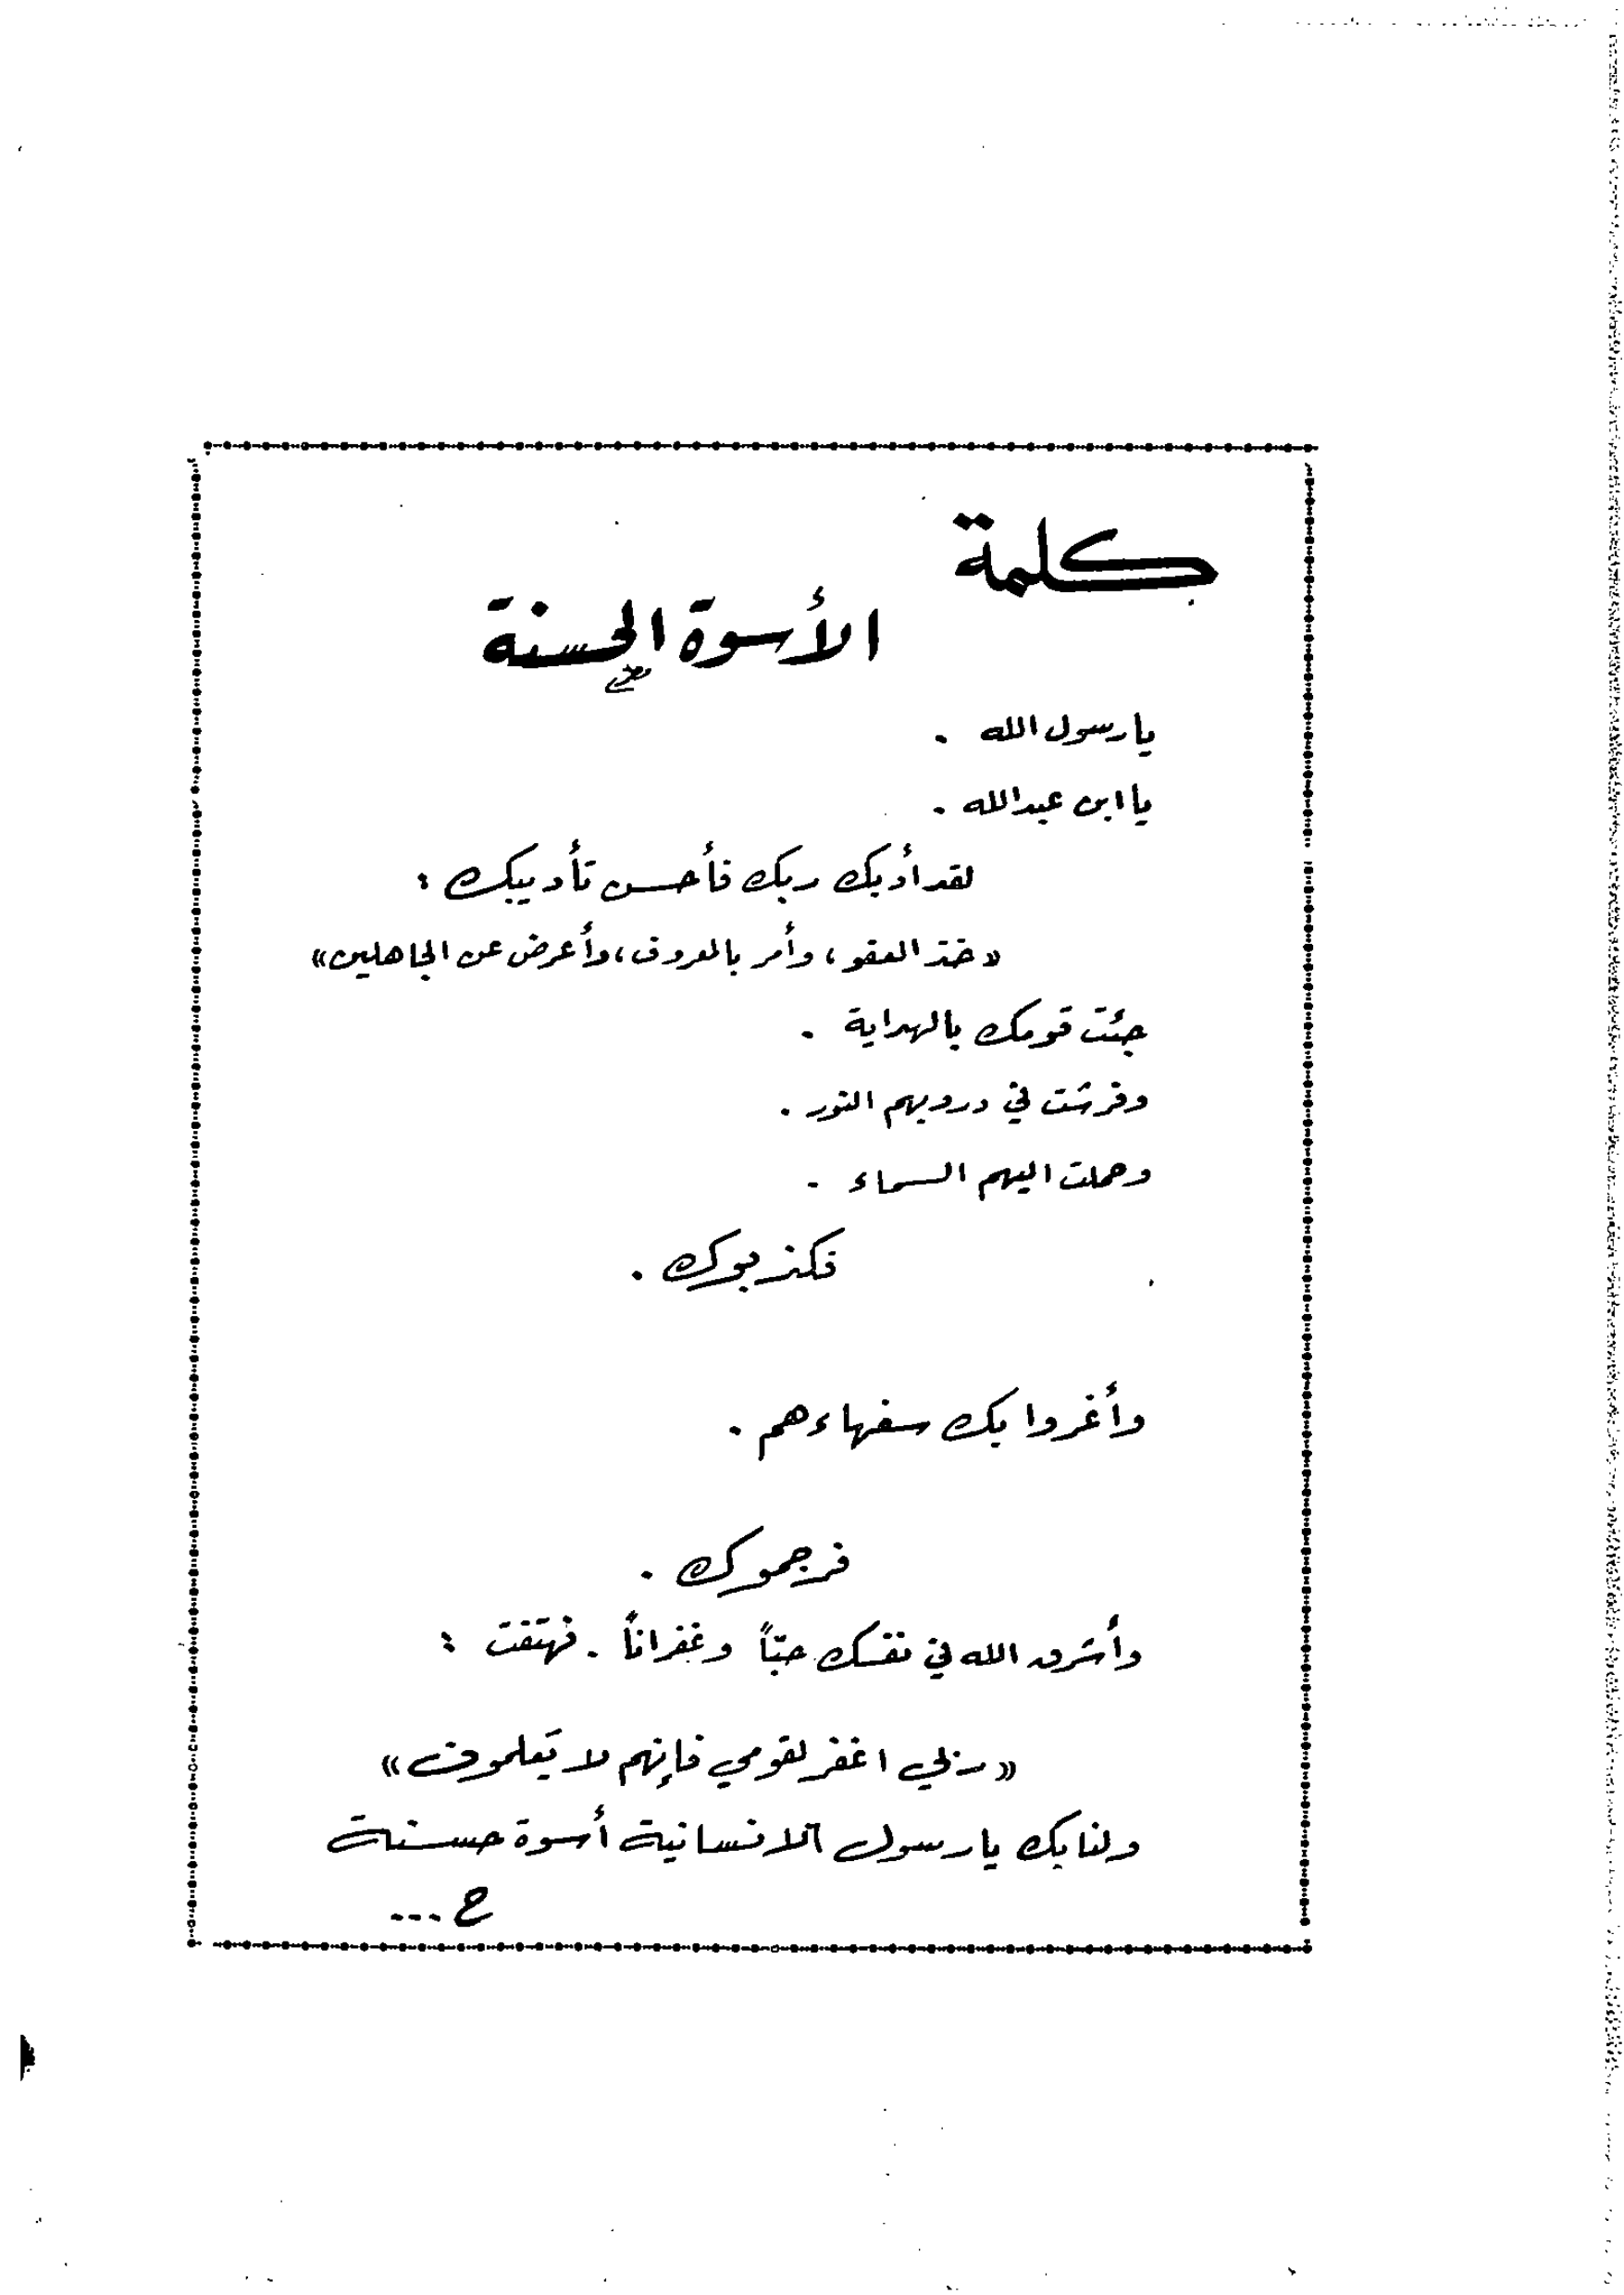 كلمة
الأسوة الحسنة
يا رسول الله .
يا ابن عبدالله .
لقد أدبك ربك فأحسن تأديبك :
«خذ العفو ، وأمر بالمعروف ، وأعرض عن الجاهلين»
جئت قومك بالهداية .
وفرشت في دروبهم النور .
وحملت اليهم السماء .
فكذبوك .
وأغروا بك سفهاءهم .
فرجموك .
وأشرق الله في نفسك حبّاً وغفراناً . فهتفت :
«ربي اغفر لقومي فإنهم لا يعلمون»
ولنا بك يا رسول الانسانية أسوة حسنة
ح ...